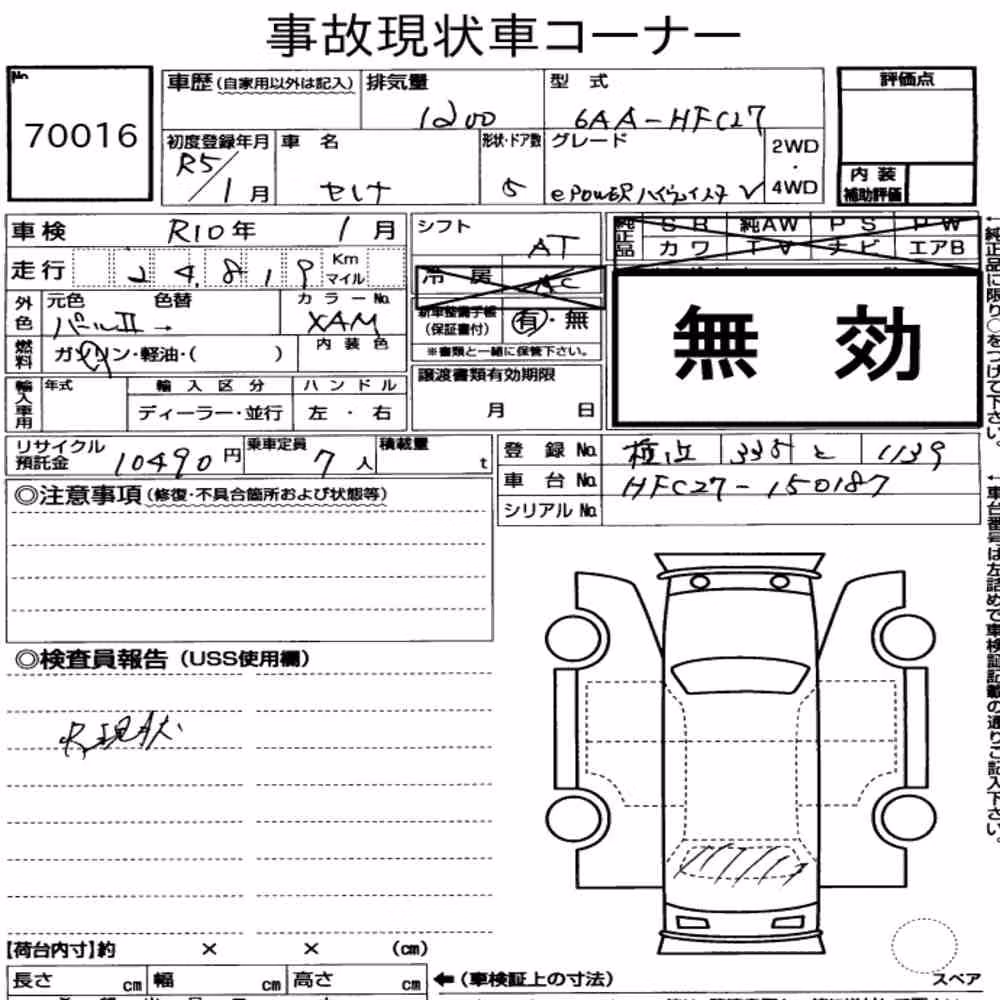 事故現状車コーナー
No. 70016
車歴(自家用以外は記入) 排気量 1200 型式 6AA-HFC27 評価点
初度登録年月 R5/1月 車名 セレナ 形状・ドア数 5 グレード e POWER ハイウェイスター V 2WD・4WD
内装補助評価
車検 R10年 1月 シフト AT
純正品 SR 純AW PS PW
カワ TV ナビ エアB
走行 24,819 Km マイル 冷房 AC
外色 元色 パールII → 色替 カラーNo. XAM
新車整備手帳(保証書付) 有・無
※書類と一緒に保管下さい。
無効
燃料 ガソリン・軽油・( ) 内装色
輸入車用 年式 輸入区分 ハンドル
ディーラー・並行 左・右
譲渡書類有効期限
月 日
リサイクル預託金 10490円 乗車定員 7人 積載量 t
登録No. 335 と 1139
車台No. HFC27-150187
シリアルNo.
◎注意事項(修復・不具合箇所および状態等)
◎検査員報告(USS使用欄)
現状
【荷台内寸】約 × × (cm)
長さ cm 幅 cm 高さ cm ←(車検証上の寸法)
スペア
←純正品に限り○をつけて下さい。
←車台番号は左詰めで車検証記載の通りご記入下さい。